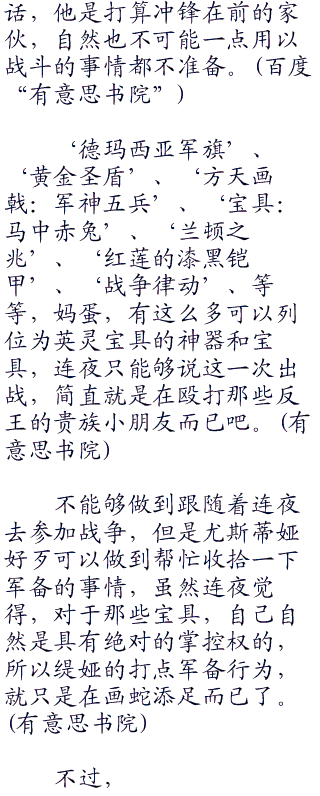 话，他是打算冲锋在前的家
伙，自然也不可能一点用以
战斗的事情都不准备。(百度
“有意思书院”)
‘德玛西亚军旗’、
‘黄金圣盾’、‘方天画
戟：军神五兵’、‘宝具：
马中赤兔’、‘兰顿之
兆’、‘红莲的漆黑铠
甲’、‘战争律动’、等
等，妈蛋，有这么多可以列
位为英灵宝具的神器和宝
具，连夜只能够说这一次出
战，简直就是在殴打那些反
王的贵族小朋友而已吧。(有
意思书院)
不能够做到跟随着连夜
去参加战争，但是尤斯蒂娅
好歹可以做到帮忙收拾一下
军备的事情，虽然连夜觉
得，对于那些宝具，自己自
然是具有绝对的掌控权的，
所以缇娅的打点军备行为，
就只是在画蛇添足而已了。
(有意思书院)
不过，